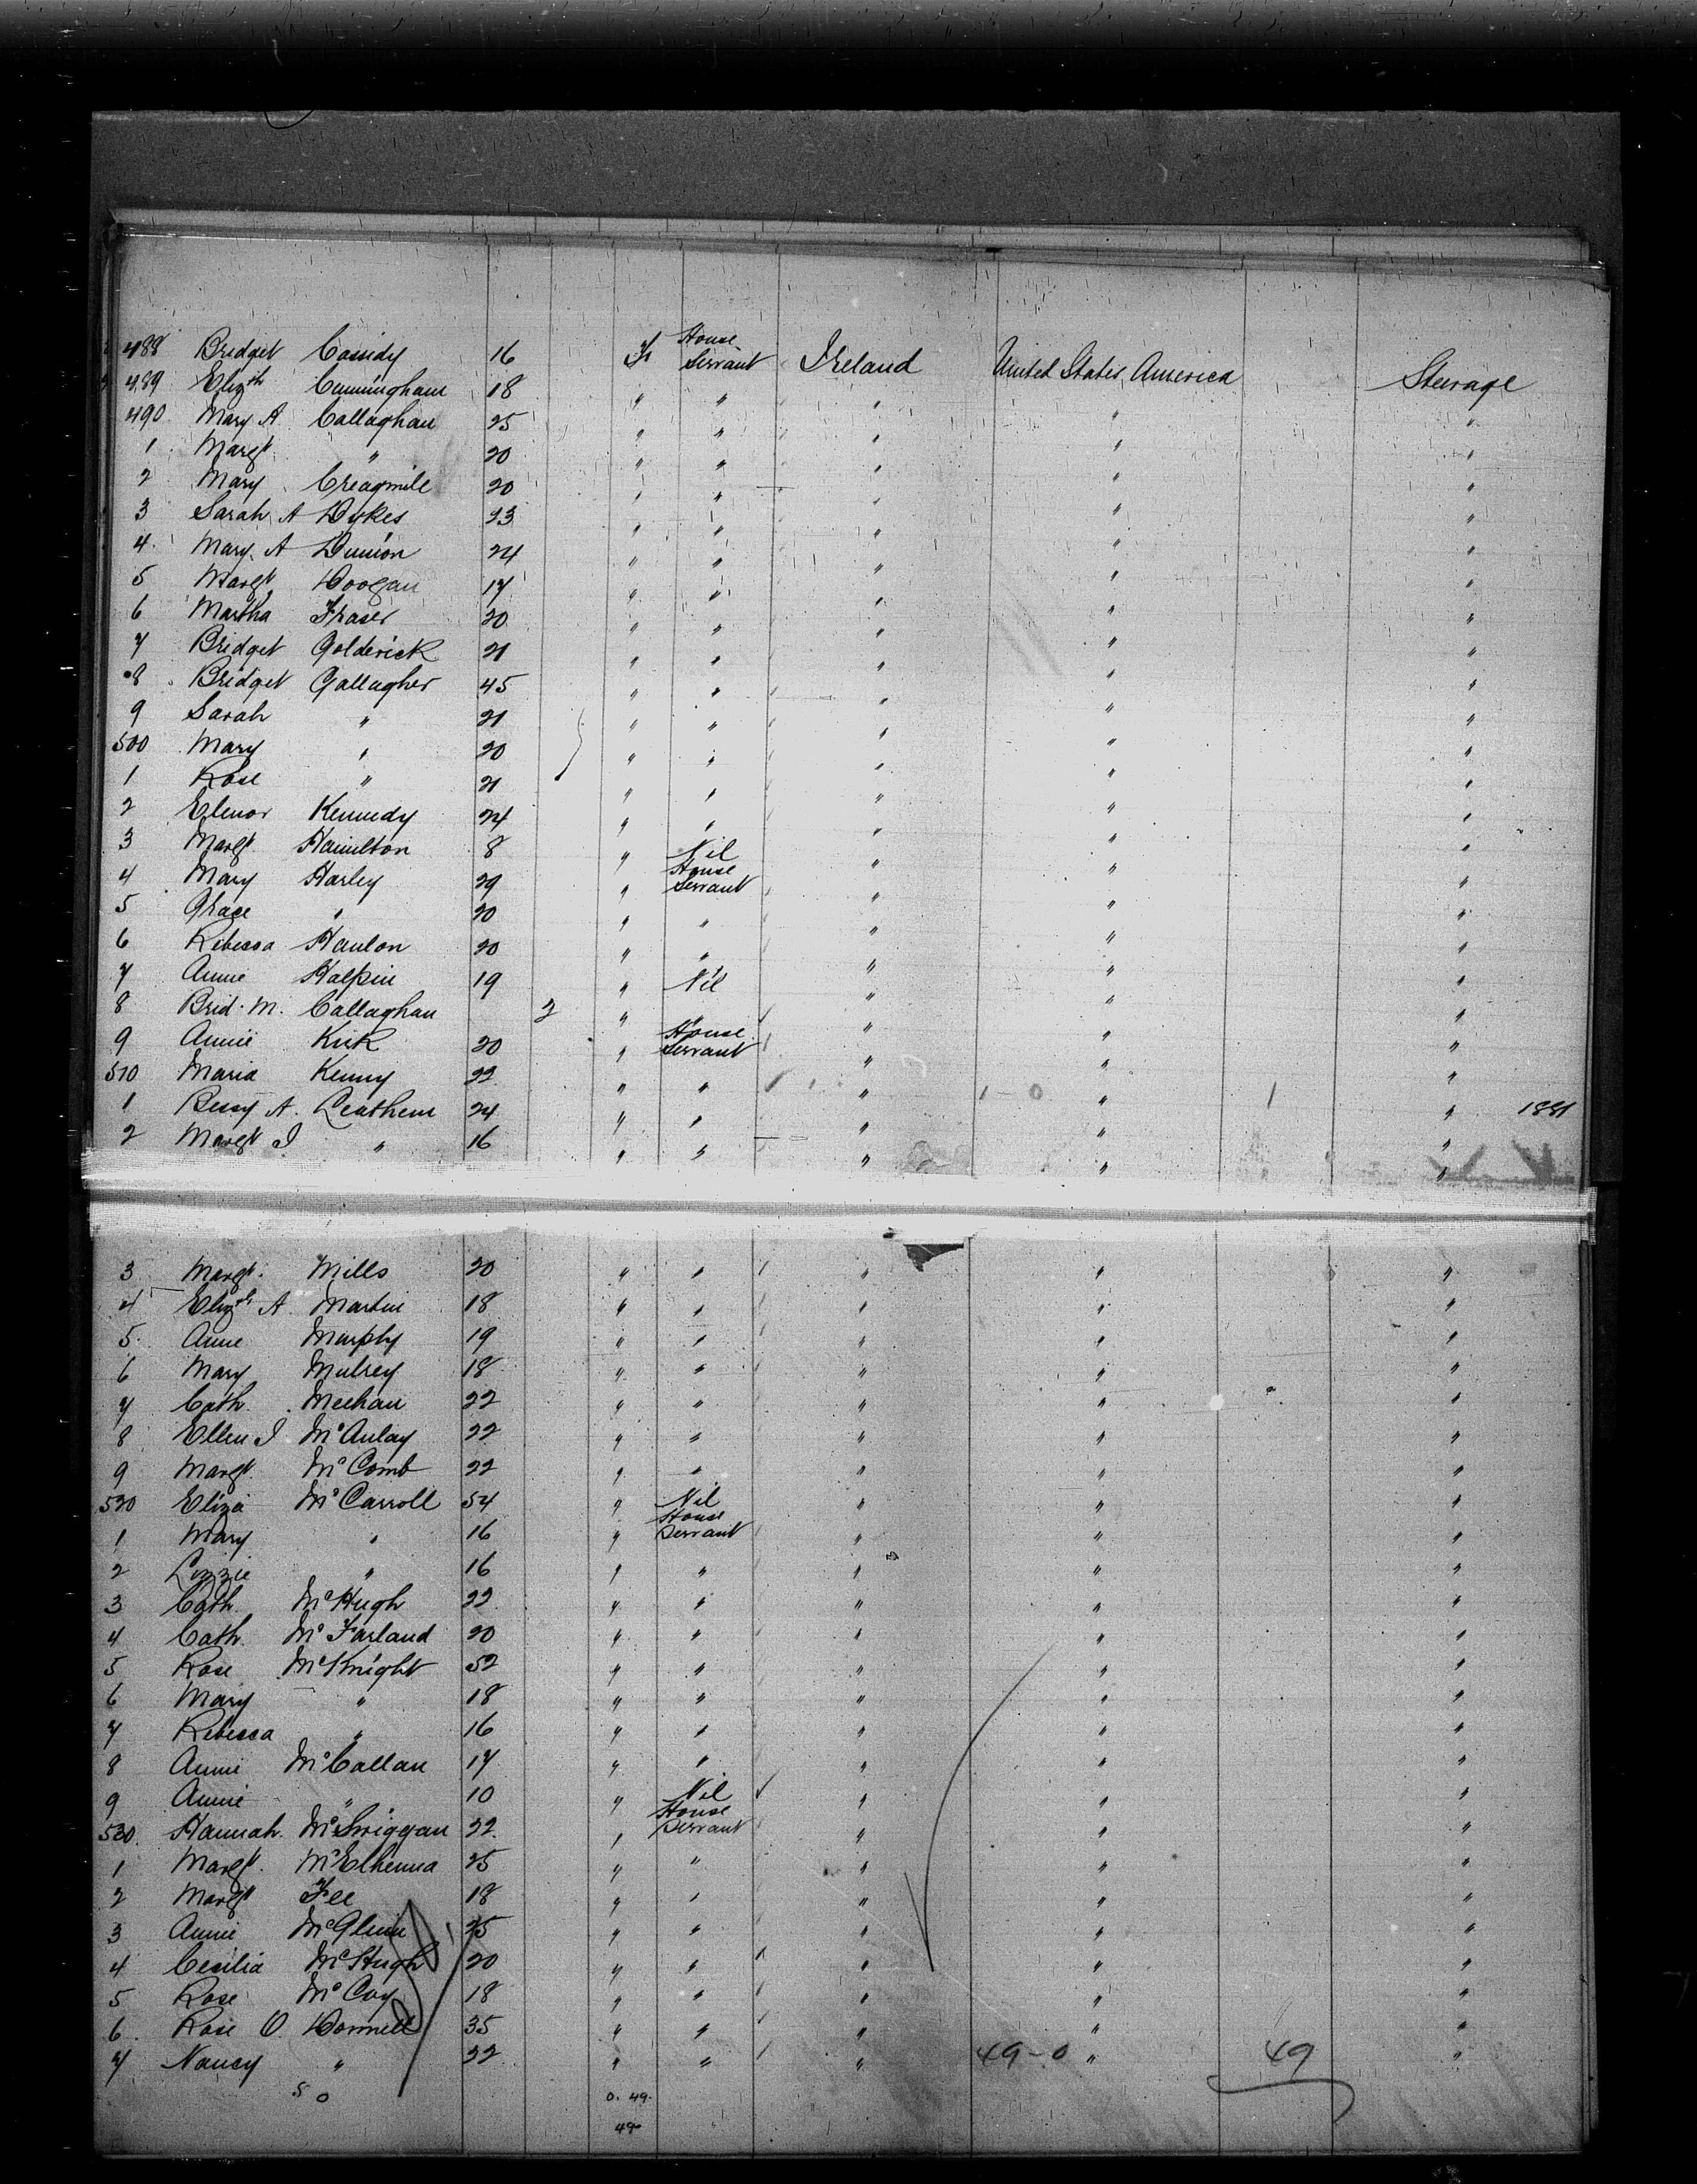 488 Bridget Cassidy 16 F House Servant Ireland United States America Steerage
489 Elizth Cunningham 18 " " " " "
490 Mary A Callaghan 25 " " " " "
1 Margt " 20 " " " " "
2 Mary Creagmile 20 " " " " "
3 Sarah A Dykes 23 " " " " "
4 Mary A Dunion 24 " " " " "
5 Margt Doogan 17 " " " " "
6 Martha Fraser 20 " " " " "
7 Bridget Golderick 21 " " " " "
8 Bridget Gallagher 45 " " " " "
9 Sarah " 21 " " " " "
500 Mary " 20 " " " " "
1 Rose " 21 " " " " "
2 Elenor Kennedy 24 " " " " "
3 Margt Hamilton 8 " Nil " " "
4 Mary Harley 29 " House Servant " " "
5 Grace " 20 " " " " "
6 Rebecca Hanlon 20 " " " " "
7 Annie Halpin 19 " Nil " " "
8 Brid. M. Callaghan 2 " " " " "
9 Annie Kirk 20 " House Servant " " "
510 Maria Kenny 22 " " " 1-0 " 1 "
1 Bessy A. Leathem 24 " " " " " 1881
2 Margt J " 16 " " " " "
3 Margt. Mills 20 " " " " "
4 Elizth A Martin 18 " " " " "
5 Anne Murphy 19 " " " " "
6 Mary Mulrey 18 " " " " "
7 Cath. Meehan 22 " " " " "
8 Ellen J McAulay 22 " " " " "
9 Margt. McComb 22 " " " " "
520 Eliza McCarroll 54 " Nil " " "
1 Mary " 16 " House Servant " " "
2 Lizzie " 16 " " " " "
3 Cath. McHugh 22 " " " " "
4 Cath. McFarland 20 " " " " "
5 Rose McKnight 52 " " " " "
6 Mary " 18 " " " " "
7 Rebecca " 16 " " " " "
8 Annie McCallan 17 " " " " "
9 Annie " 10 " Nil " " "
530 Hannah McSwiggan 22 " House Servant " " "
1 Margt. McElhenna 25 " " " " "
2 Margt Fee 18 " " " " "
3 Annie McGlinn 25 " " " " "
4 Cecilia McHugh 20 " " " " "
5 Rose McCoy 18 " " " " "
6 Rose O'Donnell 35 " " " " "
7 Nancy " 22 " " " 49-0 " 49 "
50 0. 49.
49